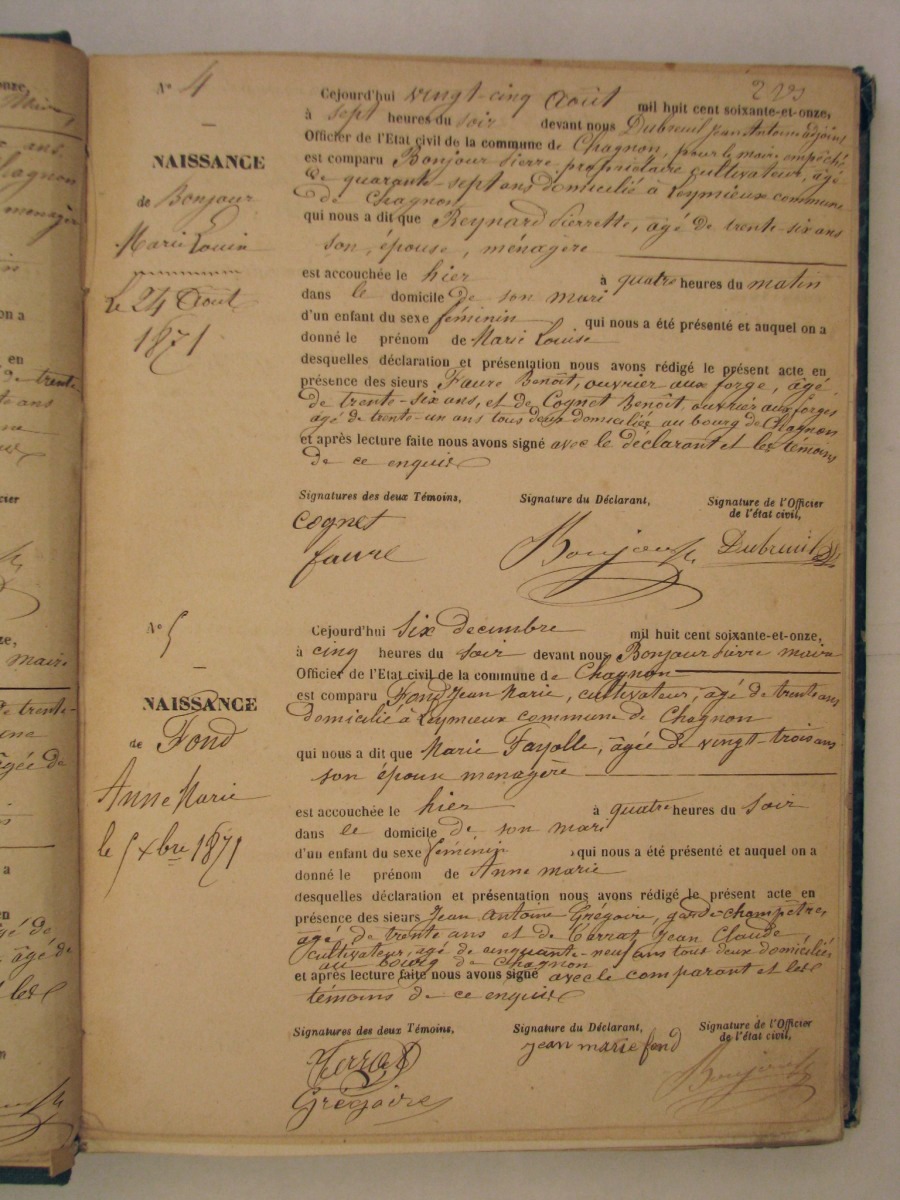 N° 4
NAISSANCE
de Bonjour
Marie Louise
Le 24 Août
1871
Cejourd'hui vingt-cinq Août mil huit cent soixante-et-onze,
à sept heures du soir devant nous Dubreuil Jean Antoine adjoint
Officier de l'Etat civil de la commune de Chagnon, pour le maire empêché
est comparu Bonjour Pierre, propriétaire cultivateur, âgé
de quarante-sept ans domicilié à Leymieux commune
de Chagnon
qui nous a dit que Reynard Pierrette, âgé de trente-six ans
son épouse, menagère
est accouchée le hier à quatre heures du matin
dans le domicile de son mari
d'un enfant du sexe féminin qui nous a été présenté et auquel on a
donné le prénom de Marie Louise
desquelles déclaration et présentation nous avons rédigé le présent acte en
présence des sieurs Faure Benoît, ouvrier aux forge, âgé
de trente-six ans, et de Cognet Benoît, ouvrier aux forges
âgé de trente-un ans tous deux domiciliés au bourg de Chagnon
et après lecture faite nous avons signé avec le déclarant et les témoins
de ce enquis
Signatures des deux Témoins, Signature du Déclarant, Signature de l'Officier
de l'état civil,
Cognet
faure Bonjour Dubreuil
N° 5
NAISSANCE
de Fond
Anne Marie
le 5 Xbre 1871
Cejourd'hui Six decembre mil huit cent soixante-et-onze,
à cinq heures du soir devant nous Bonjour Pierre maire
Officier de l'Etat civil de la commune de Chagnon
est comparu Fond Jean Marie, cultivateur, âgé de trente ans
domicilié à Leymieux commune de Chagnon
qui nous a dit que Marie Fayolle, âgée de vingt-trois ans
son épouse menagère
est accouchée le hier à quatre heures du soir
dans le domicile de son mari
d'un enfant du sexe féminin qui nous a été présenté et auquel on a
donné le prénom de Anne marie
desquelles déclaration et présentation nous avons rédigé le présent acte en
présence des sieurs Jean Antoine Grégoire, garde-champêtre,
âgé de trente ans et de Jean Claude,
cultivateur, âgé de cinquante-neuf ans tous deux domiciliés
au bourg de Chagnon
et après lecture faite nous avons signé avec le comparant et les
témoins de ce enquis
Signatures des deux Témoins, Signature du Déclarant, Signature de l'Officier
de l'état civil,
jean marie fond
Grégoire Bonjour